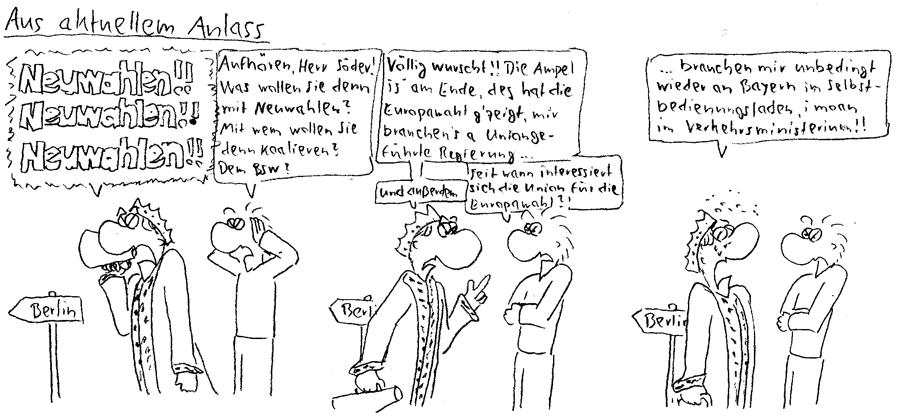 Aus aktuellem Anlass
Neuwahlen!!
Neuwahlen!!
Neuwahlen!!
Aufhören, Herr Söder!
Was wollen Sie denn
mit Neuwahlen?
Mit wem wollen Sie
denn koalieren?
Dem BSW?
Berlin
Völlig wurscht!! Die Ampel
is am Ende, des hat die
Europawahl g'zeigt, mir
brauchen's a Unionge-
führte Regierung...
und außerdem
Seit wann interessiert
sich die Union für die
Europawahl?!
Berli
... brauchen mir unbedingt
wieder an Bayern im Selbst-
bedienungsladen, i moan
im Verkehrsministerium!!
Berlin